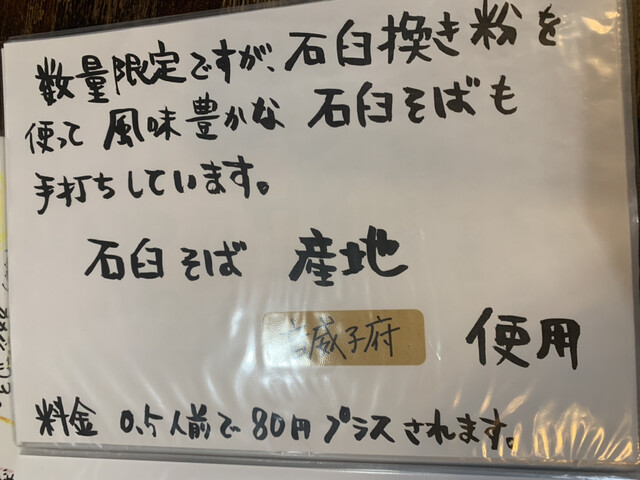 数量限定ですが、石臼挽き粉を
使って風味豊かな石臼そばも
手打ちしています。
石臼そば 産地
音威子府 使用
料金 0.5人前で80円プラスされます。